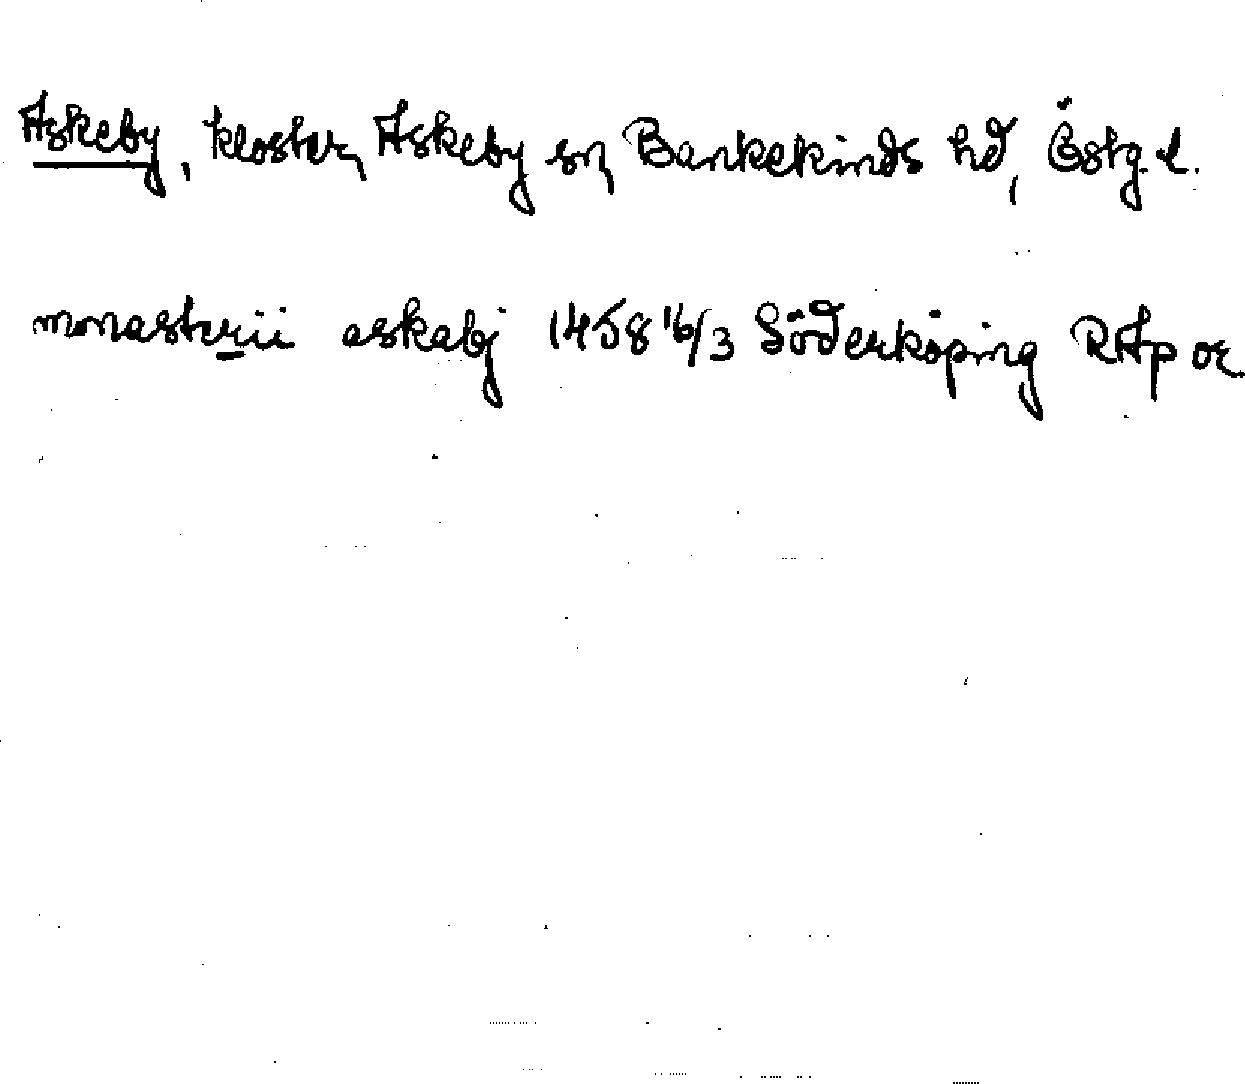 Askeby, kloster, Askeby sn, Bankekinds hd, Östg. l.
monasterii askabj 1458 16/3 Söderköping RAp or